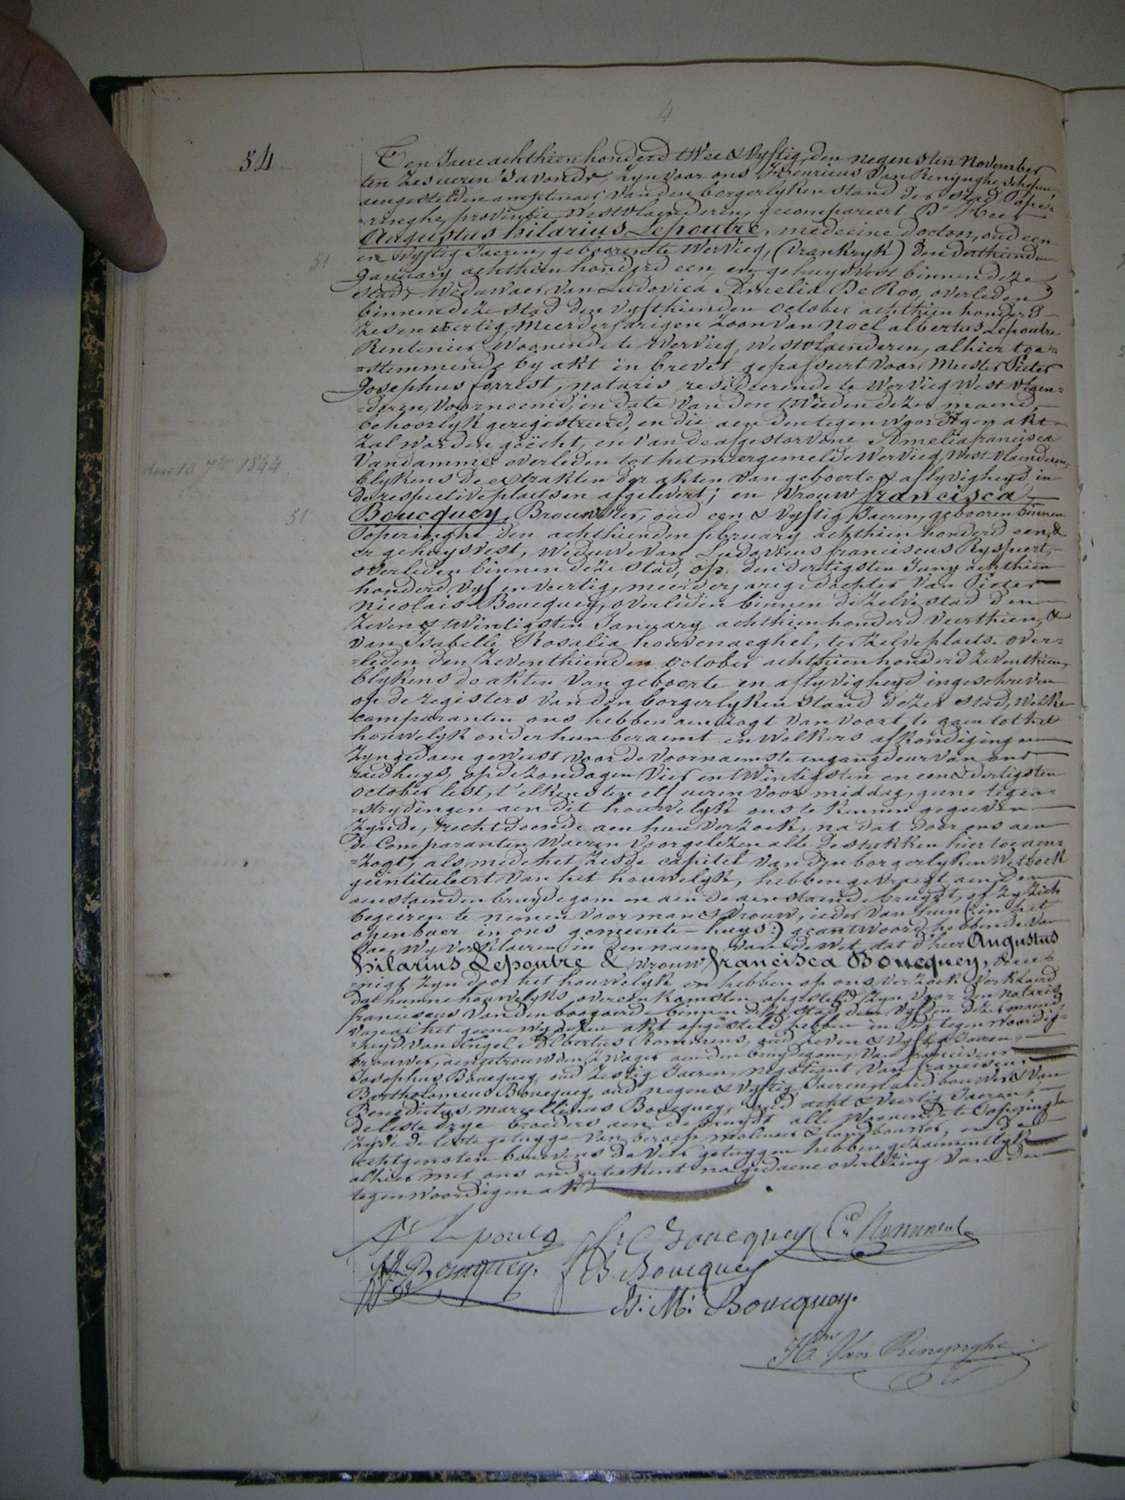 4
54
Ten Jaere achthien honderd twee & vyftig, den negensten November
ten zes ueren 's avonds, zyn voor ons Henricus Van Renynghe Schepen,
aengestelden amptenaer van den borgerlyken stand der stad Pope-
-ringhe, provintie Westvlaenderen, gecompareert Dr. Heer
Augustus hilarius Lepoutre, medecine doctor, oud een
en vyftig Jaeren, gebooren te Wervicq, (Vrankryk) den derthienden
51
January achthien honderd een, en gehuysvest binnen deze
stad, Weduwaer van Ludovica Amelia De Roo, overleden
binnen deze stad den vyfthienden october achthien honderd
zes en veertig, meerderjarigen zoon van Noel albertus Lepoutre
Rentenier, Woonende te Wervicq, Westvlaenderen, alhier toe-
-stemmende by akt in brevet gepasseert voor Meester Pieter
Josephus forrest, notaris resideerende te Wervicq West vlaen-
-deren, voornoemd, in date van den tweeden dezer maend,
behoorlyk geregistreerd, en die aen den tegenwoordigen akt
zal worden gehecht, en van de afgestorvene Amelia francisca
Vandamme overleden tot het meergemelde Wervicq, West vlaenderen,
den 16 7bre 1844
blykens de extrakten der akten van geboorte & aflyvigheyd in
de respective plaetsen afgelevert; en Vrouw francisca
51
Boucquey, Brouwster, oud een & vyftig Jaeren, gebooren binnen
Poperinghe den achthienden february achthien honderd een, &
er gehuysvest, Weduwe van Ludovicus franciscus Ryspeert,
overleden binnen deze stad, op den dertigsten Juny achthien
honderd vyf en veertig, meerderjarige dochter van Pieter
Nicolais Boucquey, overleden binnen dezelve stad den
zeven & twintigsten January achthien honderd veerthien, &
van Isabelle Rosalia houvenaeghel, ter zelve plaets over-
-leden den zeventhienden october achthien honderd zeventhien,
blykens de akten van geboorte en aflyvigheyd ingeschreven
op de registers van den borgerlyken stand dezer stad, Welke
comparanten ons hebben aenzogt van voort te gaen tot het
houwelyk onder hun beraemt en welkers afkondigingen
zyn gedaen geweest voor de voornaemste ingangdeur van ons
raedhuys, op de zondagen Vier en twintigsten en een & dertigsten
october lest, t' elkens ten elf ueren voor middag, geene tegen-
-strydingen aen dit houwelyk ons te kennen gegeven
zynde, recht doende aen hun verzoek, na dat door ons aen
de Comparanten waeren voorgelezen alle de stukken hier toe aen-
-zogt, als mede het zesde capitel van den borgerlyken Wetboek
geintituleert van het houwelyk, hebben gevraegt aen den
aenstaenden bruydegom en aen de aenstaende bruydt, of zy zich
begeiren te nemen voor man & vrouw, ieder van hun (in het
openbaer in ons gemeente-huys:) geantwoord hebbende van
Jae, Wy verklaeren in den naem van de wet, dat d'heer Augustus
hilarius Lepoutre & vrouw francisca Boucquey, veree-
-nigt zyn door het houwelyk en hebben op ons verzoek verklaerd
dat hunne houwelyks overeenkomsten opgesteld zyn voor den notaris
franciscus Vandenboogaerde binnen deze stad, den vyfden dezer maend,
van al het geene wy dezen akt opgesteld hebben in de tegenwoordig-
-heyd van Angel Albertus Rommens, oud zeven & vyftig Jaeren,
brouwer, aengetrouwden swager aen den bruydegom, van franciscus
Josephus Boucquey, oud zestig Jaeren, negotiant, van franciscus
Bartholomeus Boucquey, oud negen & vyftig Jaeren, landbouwer & van
Benedictus marcellinus Boucquey, oud acht & veertig Jaeren,
de leste drye broeders aen de bruydt, alle Woonende te Poperinghe
zynde de leste getuyge van beroep molenaer & landbouwer, en de
echtgenoten benevens de vier getuygen hebben gezamentlyk
alhier met ons onderteekent na gedaene overlezing van den
tegenwoordigen akt
A Lepoutre fe C Boucquey Cd Rommens
F J Boucquey. f B. Boucquey
B: M: Boucquey.
Hri Van Renynghe